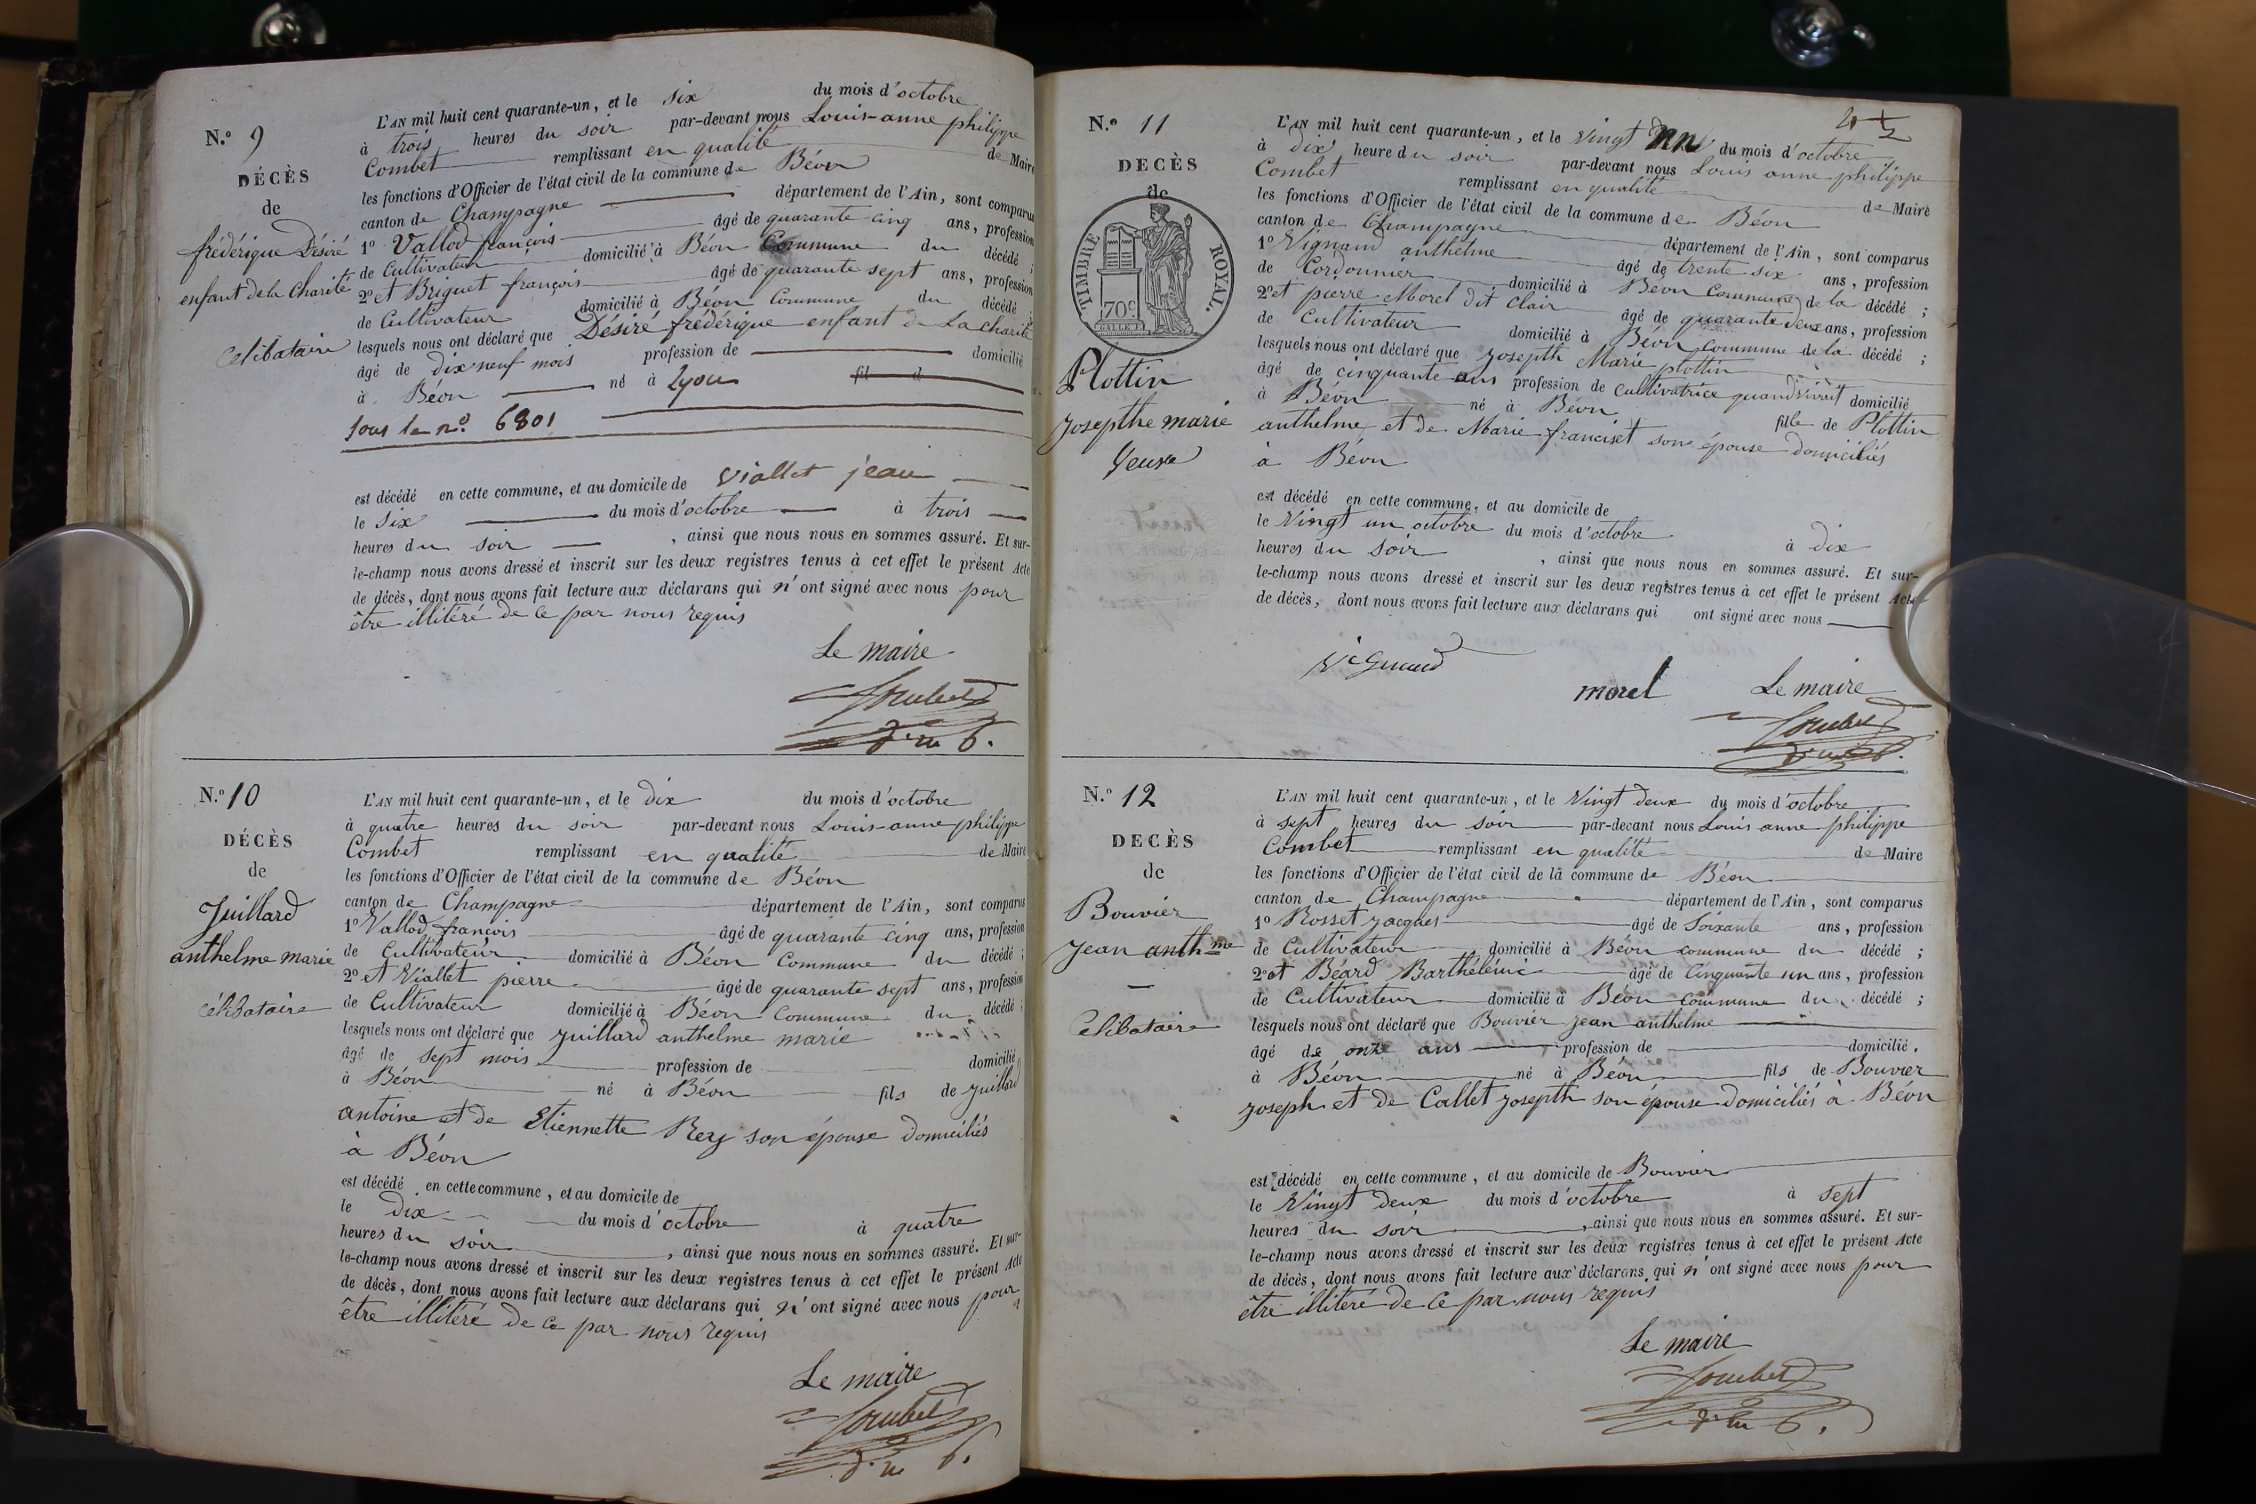 N.o 9
DÉCÈS
de
frédérique Désiré
enfant de la Charité
Celibataire
L'AN mil huit cent quarante-un, et le six du mois d'octobre
à trois heures du soir par-devant nous Louis-anne philippe
Combet remplissant en qualité de Maire
les fonctions d'Officier de l'état civil de la commune de Béon
canton de Champagne département de l'Ain, sont comparus
1o Vallod françois âgé de quarante cinq ans, profession
de Cultivateur domicilié à Béon Commune du décédé ;
2o et Briguet françois âgé de quarante sept ans, profession
de Cultivateur domicilié à Béon Commune du décédé ;
lesquels nous ont déclaré que Désiré frédérique enfant de la charité
âgé de dix neuf mois profession de domicilié
à Béon né à Lyon fil d
sous le no. 6801
est décédé en cette commune, et au domicile de Viallet jean
le six du mois d'octobre à trois
heures du soir , ainsi que nous nous en sommes assuré. Et sur-
le-champ nous avons dressé et inscrit sur les deux registres tenus à cet effet le présent Acte
de décès, dont nous avons fait lecture aux déclarans qui n'ont signé avec nous pour
être illitéré de ce par nous requis
Le maire
Combet
N.o 10
DÉCÈS
de
Juillard
anthelme marie
célibataire
L'AN mil huit cent quarante-un, et le dix du mois d'octobre
à quatre heures du soir par-devant nous Louis-anne philippe
Combet remplissant en qualité de Maire
les fonctions d'Officier de l'état civil de la commune de Béon
canton de Champagne département de l'Ain, sont comparus
1o Vallod françois âgé de quarante cinq ans, profession
de Cultivateur domicilié à Béon Commune du décédé ;
2o et Viallet pierre âgé de quarante sept ans, profession
de Cultivateur domicilié à Béon Commune du décédé ;
lesquels nous ont déclaré que Juillard anthelme marie
âgé de sept mois profession de domicilié
à Béon né à Béon fils de Juillard
antoine et de Etiennette Rey son épouse domiciliés
à Béon
est décédé en cette commune, et au domicile de
le dix du mois d'octobre à quatre
heures du soir , ainsi que nous nous en sommes assuré. Et sur-
le-champ nous avons dressé et inscrit sur les deux registres tenus à cet effet le présent Acte
de décès, dont nous avons fait lecture aux déclarans qui n'ont signé avec nous pour
être illitéré de ce par nous requis
Le maire
Combet
N.o 11
DECÈS
de
TIMBRE ROYAL.
70c
Plottin
Josepthe marie
Veuve
L'AN mil huit cent quarante-un, et le vingt un du mois d'octobre
à dix heure du soir par-devant nous Louis anne philippe
Combet remplissant en qualité de Maire
les fonctions d'Officier de l'état civil de la commune de Béon
canton de Champagne département de l'Ain, sont comparus
1o Vignand anthelme âgé de trente six ans, profession
de Cordonnier domicilié à Béon Commune de la décédé ;
2o et pierre Morel dit Clair âgé de quarante deux ans, profession
de Cultivateur domicilié à Béon commune de la décédé ;
lesquels nous ont déclaré que Josepth Marie plottin
âgé de cinquante ans profession de Cultivatrice quand vivait domicilié
à Béon né à Béon fille de Plottin
anthelme et de Marie franciset son épouse domiciliés
à Béon
est décédé en cette commune, et au domicile de
le Vingt un octobre du mois d'octobre à dix
heures du soir , ainsi que nous nous en sommes assuré. Et sur-
le-champ nous avons dressé et inscrit sur les deux registres tenus à cet effet le présent Acte
de décès, dont nous avons fait lecture aux déclarans qui ont signé avec nous
Morel Le maire
Combet
N.o 12
DECÈS
de
Bouvier
Jean anthme
Celibataire
L'AN mil huit cent quarante-un, et le Vingt deux du mois d'octobre
à sept heures du soir par-devant nous Louis anne philippe
Combet remplissant en qualité de Maire
les fonctions d'Officier de l'état civil de la commune de Béon
canton de Champagne département de l'Ain, sont comparus
1o Rosset Jacques âgé de Soixante ans, profession
de Cultivateur domicilié à Béon commune du décédé ;
2o et Béard Barthélémie âgé de Cinquante un ans, profession
de Cultivateur domicilié à Béon commune du décédé ;
lesquels nous ont déclaré que Bouvier jean anthelme
âgé de onze ans profession de domicilié
à Béon né à Béon fils de Bouvier
joseph et de Callet josepth son épouse domiciliés à Béon
est décédé en cette commune, et au domicile de Bouvier
le Vingt deux du mois d'octobre à sept
heures du soir , ainsi que nous nous en sommes assuré. Et sur-
le-champ nous avons dressé et inscrit sur les deux registres tenus à cet effet le présent Acte
de décès, dont nous avons fait lecture aux déclarans qui n'ont signé avec nous pour
être illitéré de ce par nous requis
Le maire
Combet